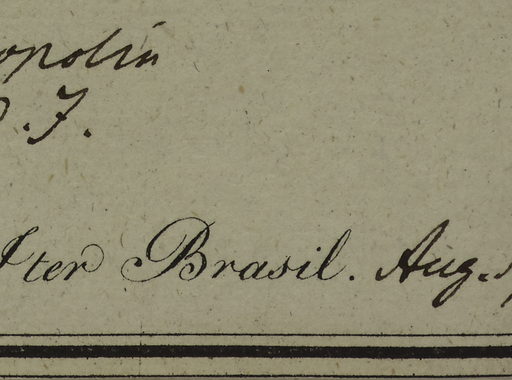 opolin
. F.
Iter Brasil. Aug.